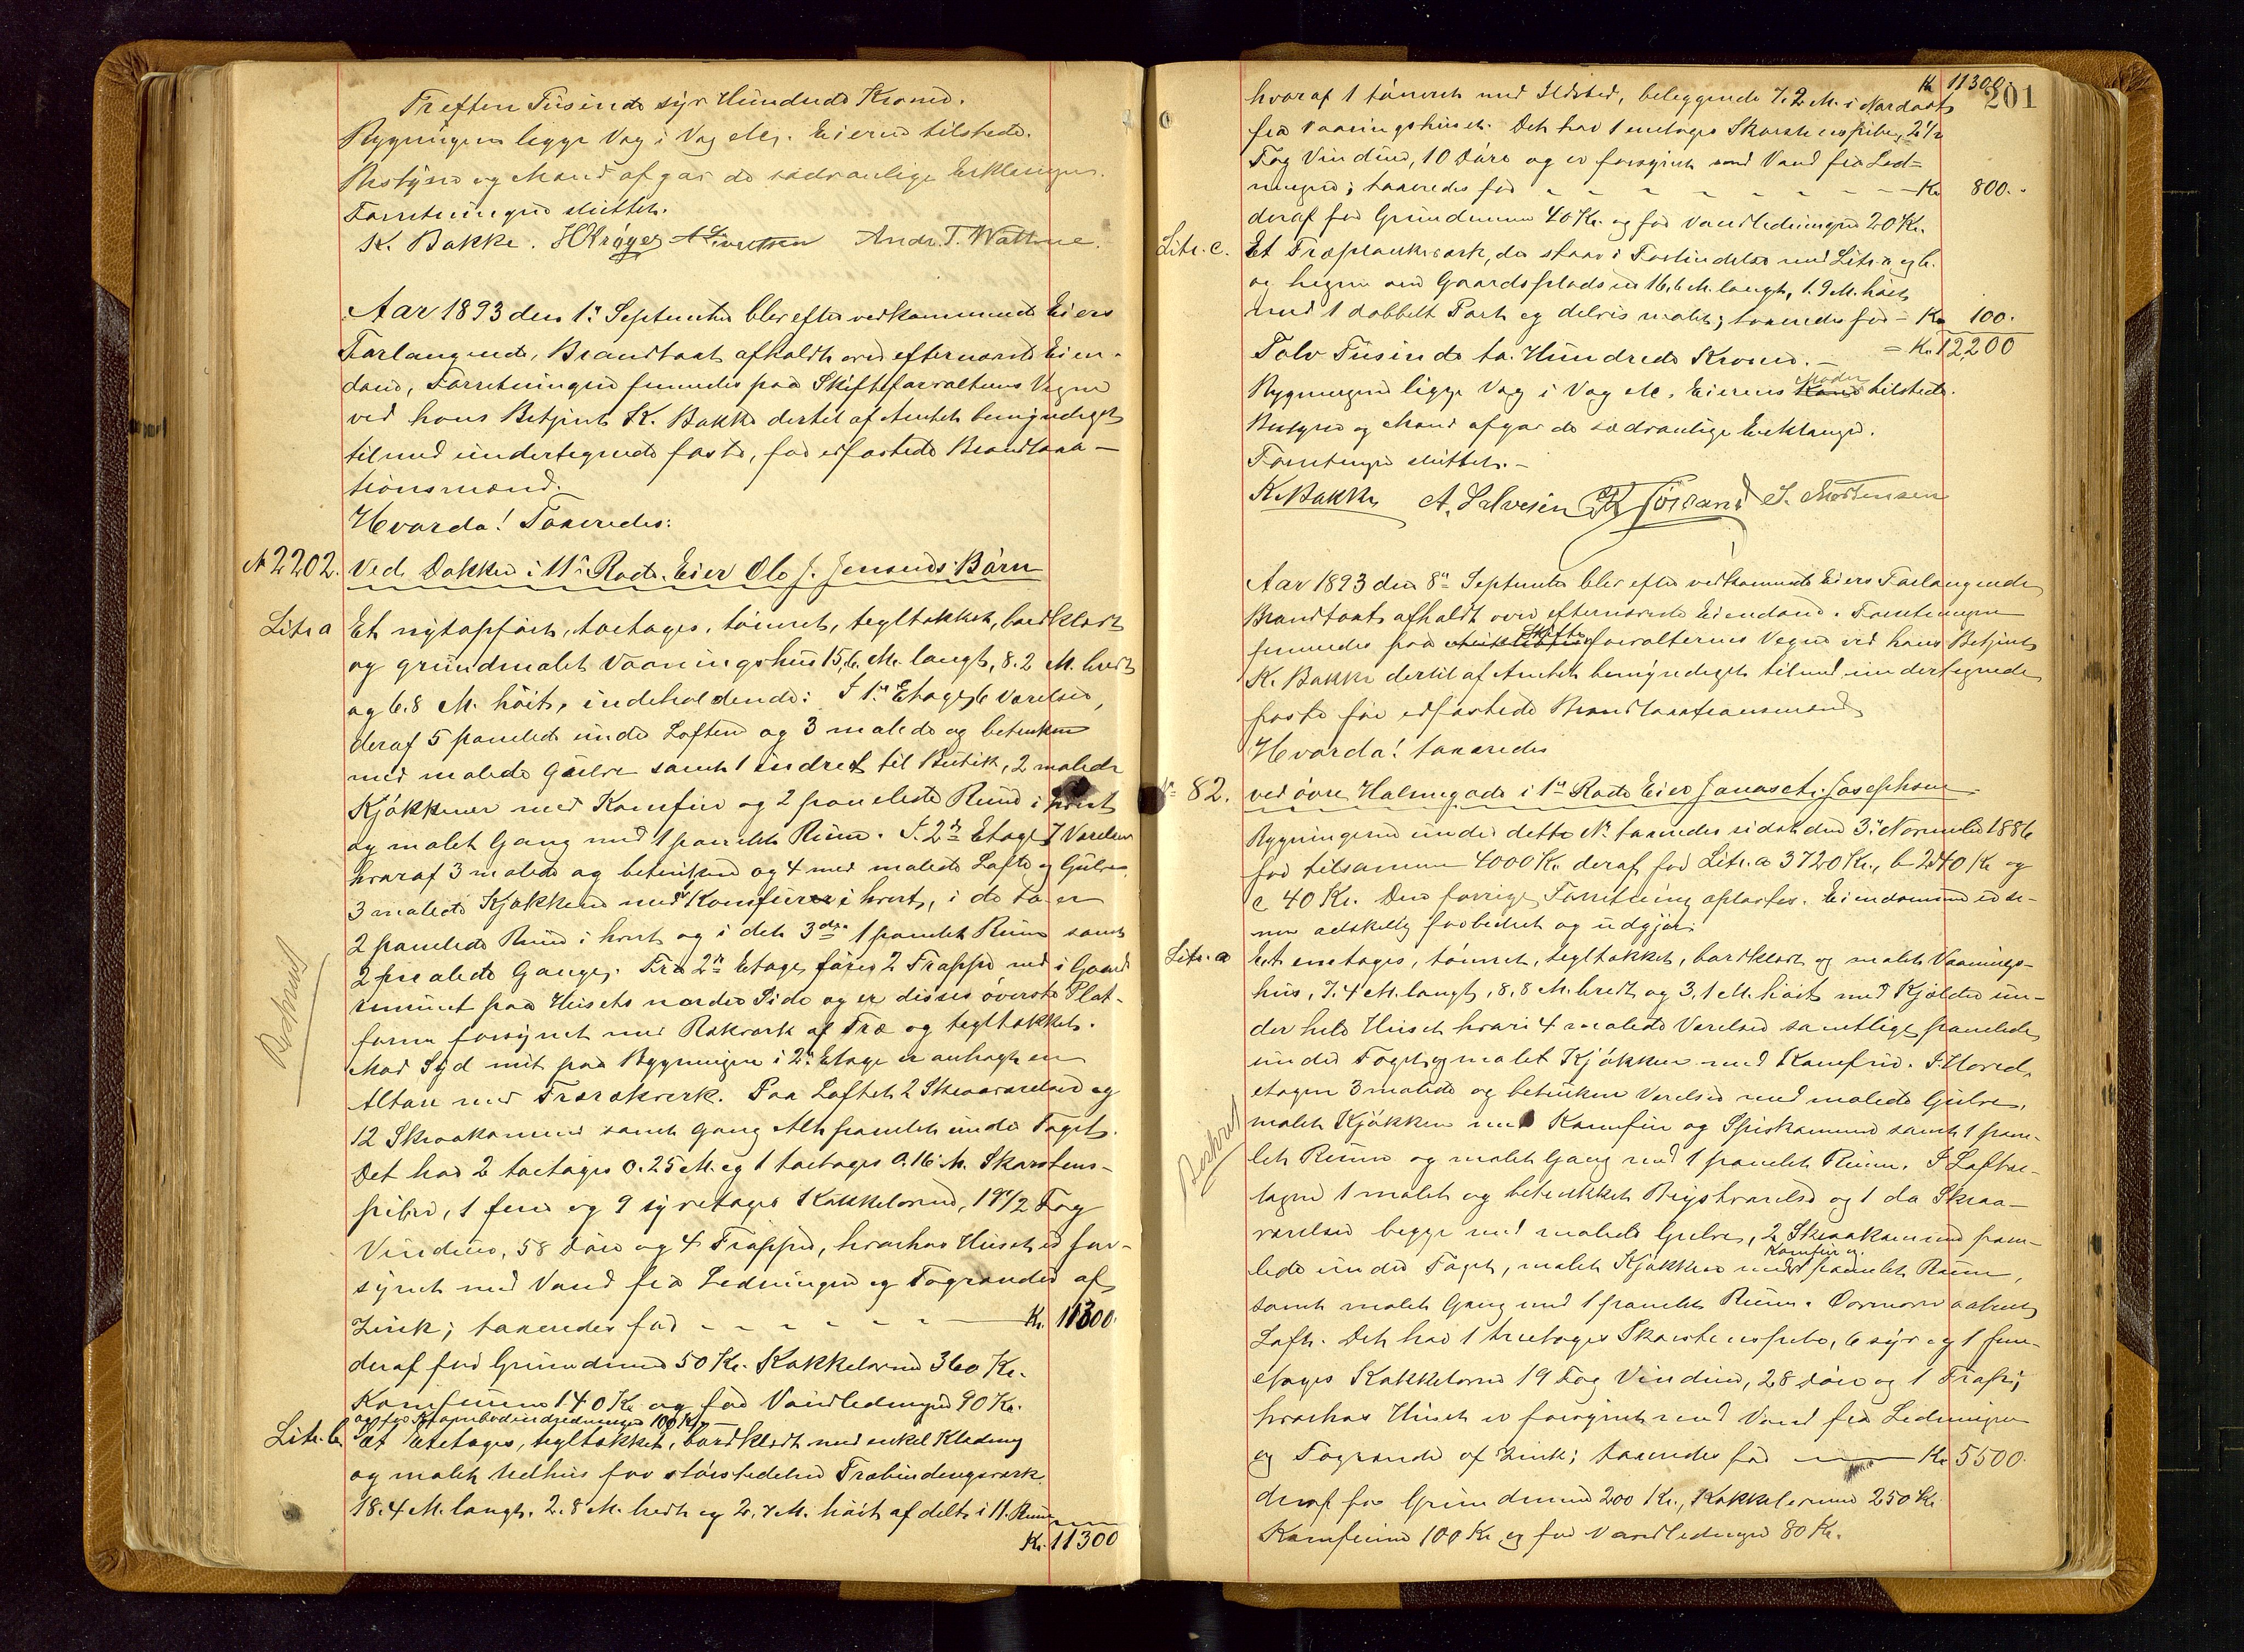 Tretten Tusinde syv Hundrede Kroner.
Bygningen ligge Væg i Væg M. Eieren tilstede.
Bestyrer og Mænd afgav de sædvanlige Erklæringer.
Forretningen sluttet.
K. Bakke. H Krøger A Sivertsen Andr. T. Wattne.
Aar 1893 den 1ste September blev efter vedkommende Eiers
Forlangende, Brandtaxt afholdt over efternævnte Eien-
dom, Forretningen fremmedes paa Skifteforvalterens Vegne
ved hans Betjent K. Bakke dertil af Amtet bemyndiget
tilmed undertegnede faste, for edfæstede Brandtaxa-
tionsmænd.
Hvorda! Taxeredes:
№ 2202. Ved Dokken i 11te Rode. Eier Ole J. Jensens Børn
Litr a Et nyt opført, toetages, tømret, tegltækket, bordklædt
og grundmalet Vaaningshus 15,6. M. langt, 8.2 M. bredt
og 6.8 M. høit, indeholdende: I 1ste Etage, 6 Værelser,
deraf 5 panelede under Loftene og 3 malede og betrukne
med malede Gulve samt 1 indredt til Butik, 2 malede
Kjøkkener med Komfur og 2 panelede Rum i hvert
og malet Gang med 1 panelet Rum. I 2den Etage 7 Værelser
hvoraf 3 malede og betrukne og 4 med malede Lofte og Gulve,
3 malede Kjøkkener med Komfurer i hvert, i de to er
2 panelede Rum i hvert og i det 3die 1 panelet Rum samt
2 malede Gange. Fra 2den Etage fører 2 Trapper ned i Gaards
rummet paa Husets nordre Side og er disses øverste Plat-
forme forsynet med Rækværk af Træ og tegltækket.
Mod Syd midt paa Bygningen i 2den Etage er anbragt en
Altan med Trærækværk. Paa Loftet 2 Skraaværelser og
12 Skraakamre samt Gang Alt panelet under Taget.
Det har 2 toetages 0.25 M. og 1 toetages 0.16 M. Skorstens-
piber, 1 fem og 9 syvetages Kakkelovne, 19 1/2 Fag
Vinduer, 58 Døre og 4 Trapper, hvorhos Huset er for-
synet med Vand fra Ledningen og Tagrender af
Zink; taxeredes for - - - - - - Kr. 11300.
deraf for Grundmur 50 Kr. Kakkelovne 360 Kr.
Komfurerne 140 Kr. og for Vandledningen 90 Kr.
og for Krambodindredningen 100 Kr.
Litr. b. Et Etetages, tegltækket, bordklædt med enkel Klædning
og malet Udhus for størstedelen Træbindingsværk
18.4 M. langt. 2.8 M. bredt og 2.7 M. høit afdelt i 11. Rum
Kr. 11300
Beskrevet
201
Kr 11300
hvoraf 1 tømret med Ildsted, beliggende 7.2 M. i Nordost
fra Vaaningshuset. Det har 1 enetages Skorstenspibe, 2 1/2
Fag Vinduer, 10 Døre og er forsynet med Vand fra Led-
ningen; taxeredes for - - - - - - Kr 800.
deraf for Grundmure 40 Kr. og for Vandledningen 20 Kr.
Litr. c. Et Træplankeværk, der staar i Forbindelse med Litr. a og b.
og hegner om Gaardspladsen 16.6 M. langt, 1.9 M. høit
med 1 dobbelt Port og delvis malet; taxeredes for - Kr 100.
Tolv Tusinde to Hundrede Kroner. - = Kr. 12,200
Bygningerne ligge Væg i Væg M. Eierens Kone Moder tilstede.
Bestyrer og Mænd afgav de sædvanlige Erklæringer.
Forretningen sluttet. -
K. Bakke A. Salvesen S. Mortensen
Aar 1893 den 8de September blev efter vedkommende Eiers Forlangende
Brandtaxt afholdt over efternævnte Eiendom. Forretningen
fremmedes paa Skifteforvalterens Vegne ved hans Betjent
K. Bakke dertil af Amtet bemyndiget tilmed undertegnede
faste for edfæstede Brandtaxationsmænd
Hvorda! taxeredes
№ 82. ved øvre Holmegade i 1ste Rode Eier Jonas Chr. Josephsen
Bygningerne under dette No taxeredes sidst den 3die November 1886
for tilsammen 4000 Kr. deraf for Litr. a 3720 Kr., b 240 Kr og
c 40 Kr. Den forrige Forretning opløstes. Eiendommen er se-
nere adskillig forbedret og udgjør:
Litr. a Et enetages, tømret, tegltækket, bordklædt og malet Vaanings-
hus, 7.4 M. langt, 8,8 M. bredt og 3.1 M. høit med Kjelder un-
der hele Huset hvori 4 malede Værelser samtlige panelede
under Taget og malet Kjøkken med Komfur. I Hoved-
etagen 3 malede og betrukne Værelser med malede Gulve,
malet Kjøkken med Komfur og Spiskammer samt 1 pane-
let Rum og malet Gang med 1 panelet Rum. I Lofts-
tagen 1 malet og betrukket Kvistværelse og 1 do Skraa-
værelse begge med malede Gulve, 2 Skraakammer pane-
lede under Taget, malet Kjøkken med Komfur og panelet Rum,
samt malet Gang med 1 panelet Rum. Ovenover aabent
Loft. Det har 1 treetages Skorstenspibe, 6 syv og 1 fem-
etages Kakkelovne 19 Fag Vinduer, 28 Døre og 1 Trappe;
hvorhos Huset er forsynet med Vand fra Ledningen
og Tagrender af Zink; taxeredes for - Kr 5500.
deraf for Grundmure 200 Kr., Kakkelovne 250 Kr.
Komfurene 100 Kr og for Vandledningen 80 Kr.
Beskrevet